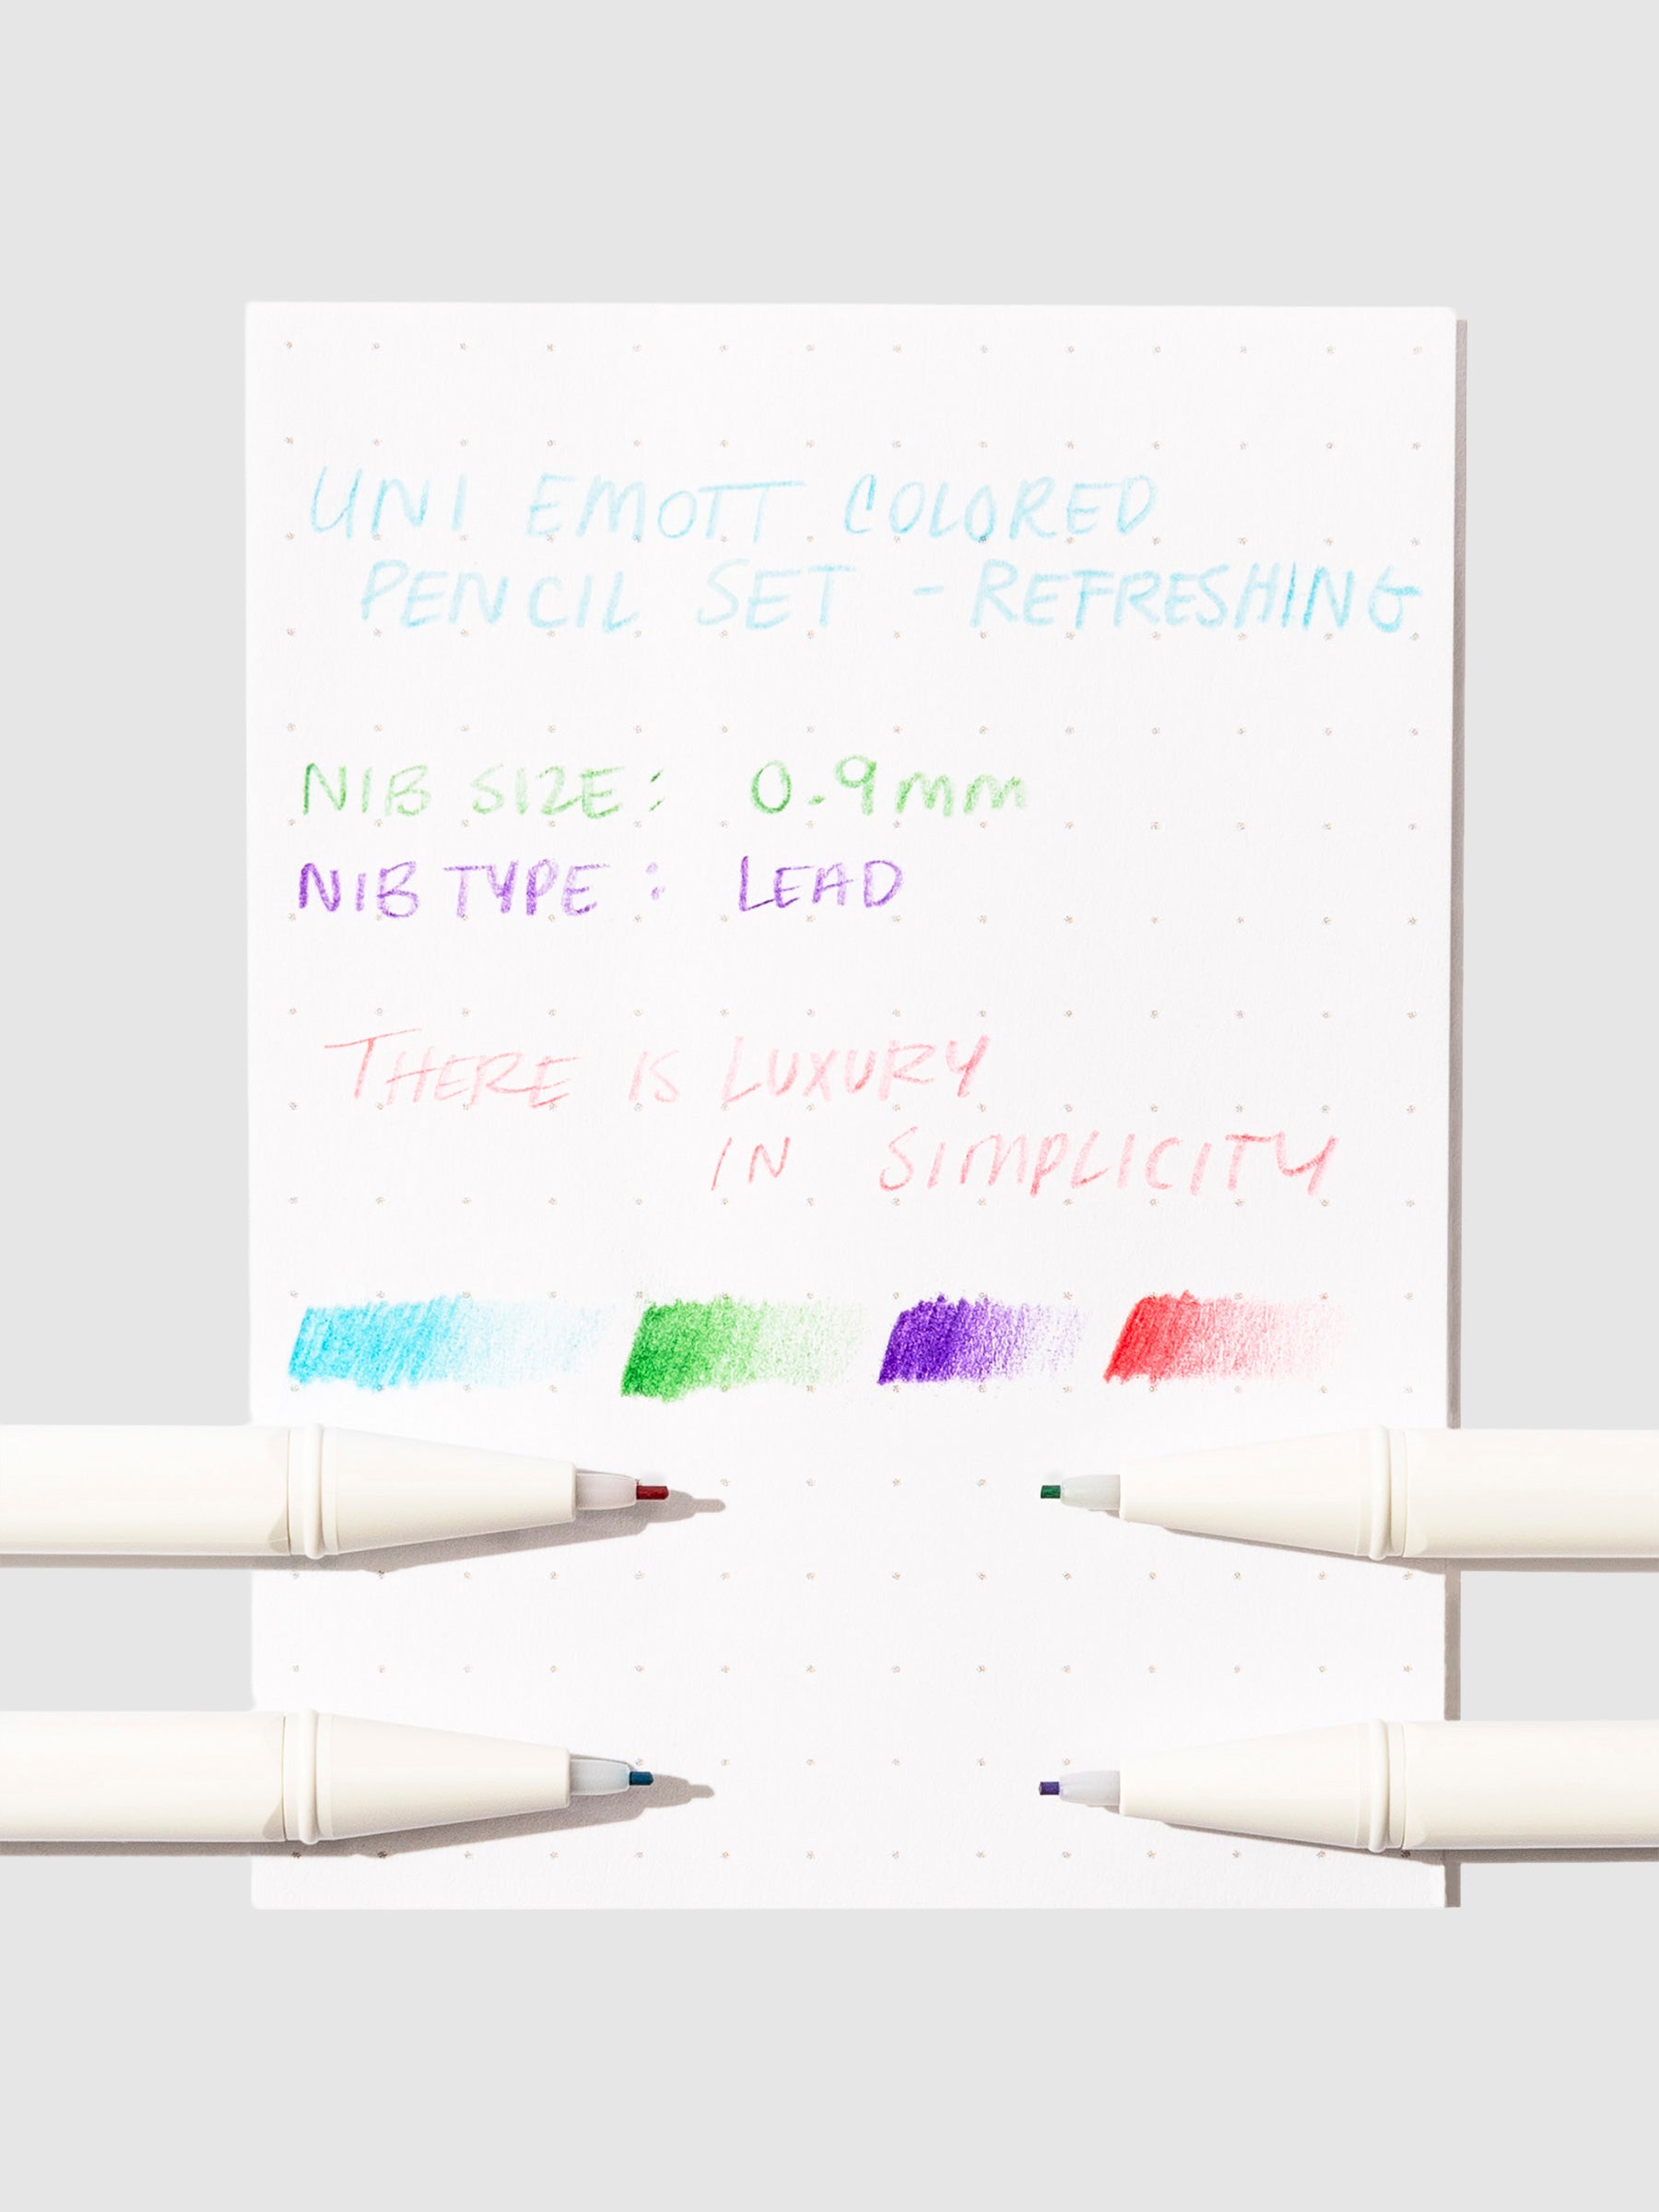 UNI EMOTT COLORED
PENCIL SET - REFRESHING
NIB SIZE: 0.9mm
NIB TYPE: LEAD
THERE IS LUXURY
IN SIMPLICITY